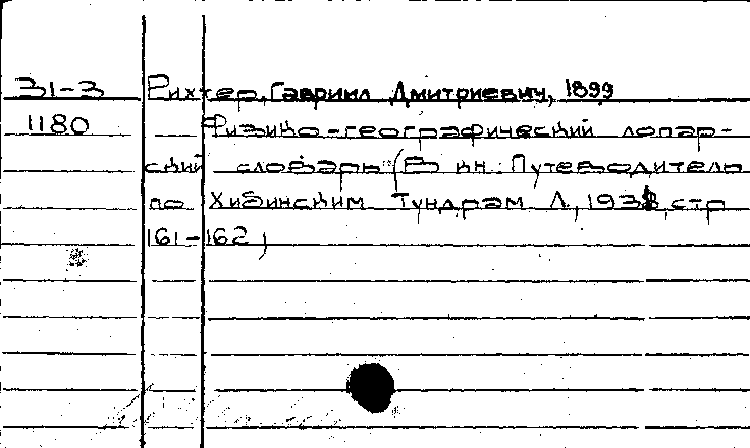 31-3 Рихтер, Гавриил Дмитриевич, 1899
1180 Физико-географический лопар-
ский словарь (В кн: Путеводитель
по Хибинским Тундрам Л, 1931, стр
161-162)